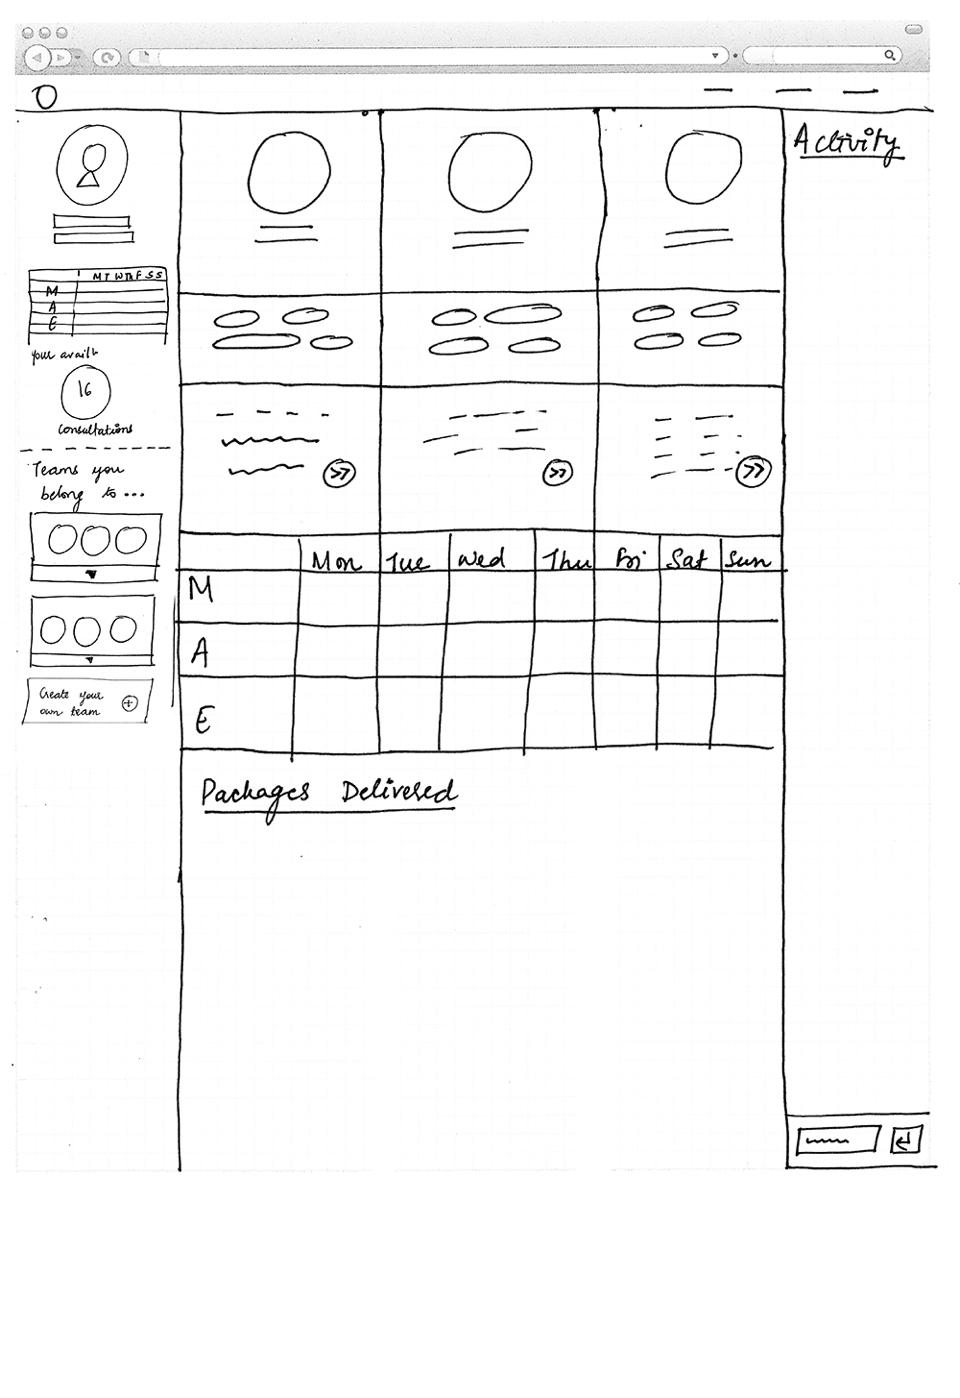 Activity
M T W Th F S S
M
A
E
your avail
16
Consultations
Teams you
belong to...
Create your
own team
Mon Tue Wed Thu Fri Sat Sun
M
A
E
Packages Delivered